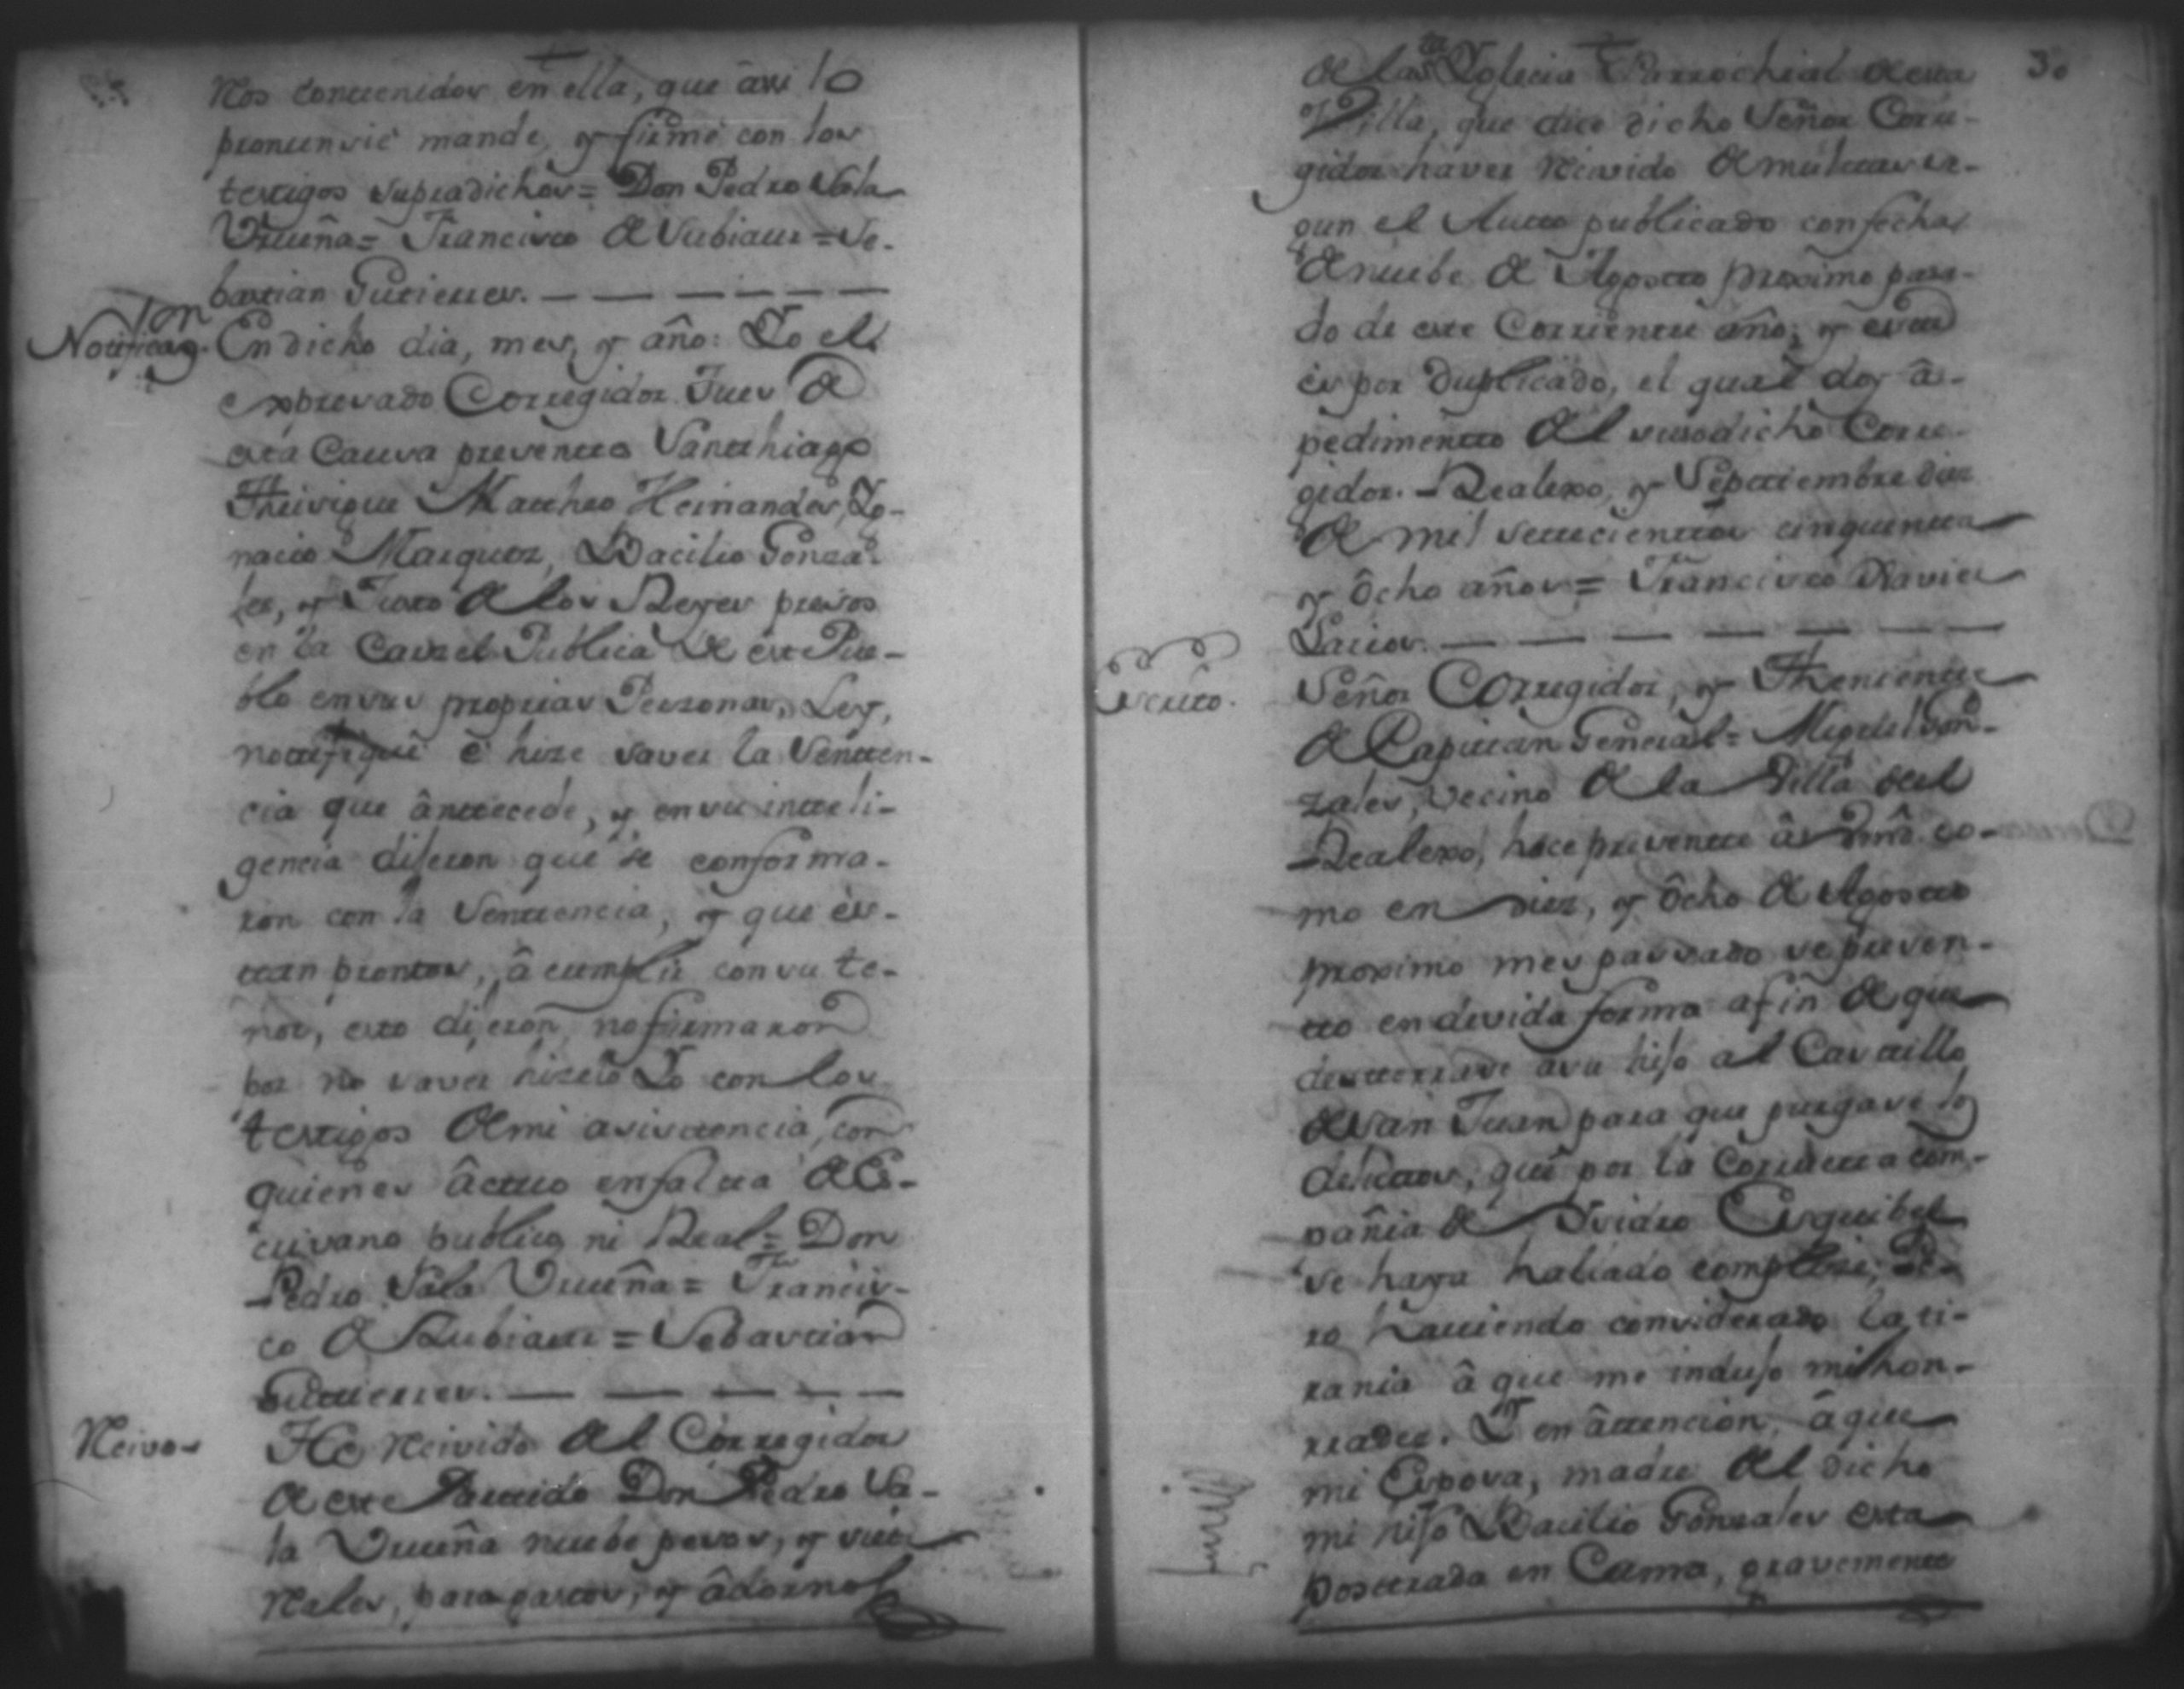 Nos contenidos en ella, que assi lo
pronuncié mande, y firmé con los
testigos supradichos = Don Pedro Sala
Urueña = Francisco de Rubiaur = Se-
bastian Gutierres.
Notificaz.on En dicho dia, mes, y año: Yo el
expresado Corregidor Jues de
esta Causa presentes Santhiago
Matheo Hernandes, Yg-
nacio Marques, Bacilio Gonza-
les, y Juan de los Reyes presos
en la Carzel Publica de este Pue-
blo en sus propias Personas, Ley,
notifiqué é hize saver la Senten-
cia que antecede, y en su inteli-
gencia dijeron que se conforma-
ron con la Sentencia, y que es-
tan prontos, â cumplir con su te-
nor, esto dijeron, no firmaron
por no saver hizelo Yo con los
testigos de mi asistencia, con
quienes âctuo en falta de Es-
crivano publico ni Real = Don
Pedro Sala Urueña = Francis-
co de Rubiaur = Sebastian
Guttierres.
Recivo He Recivido del Corregidor
de este Partido Don Pedro Sa-
la Urueña nuebe pesos, y siete
Reales, para gastos, y âdorno
30
de la Yglecia Parrochial de esta
Villa, que dice dicho Señor Corre-
gidor haver Recivido de multas se-
gun el Auto publicado con fecha
de nuebe de Agosto proximo pasa-
do de este Corriente año; y este
es por Duplicado, el qual doy â
pedimento del susodicho Corre-
gidor. Realexo, y Septiembre diez
de mil settecientos cinquenta
y ôcho años = Francisco Xavier
Escrito. Señor Corregidor, y Theniente
de Capitan General = Miguel Gon-
zales, vecino de la Villa del
Realexo, hace presente â Vmd. co-
mo en diez, y ôcho de Agosto
proximo mes passado se presen-
to en devida forma a fin de que
desterrase a su hijo al Castillo
de San Juan para que purgase los
delictos, que por la Corrupta com-
pañia de Ysidro Esquibel
se haya hallado complice; Pe-
ro haviendo considerado la ti-
rania â que me indujo mi hon-
rrades. Y en âttencion, âque
mi Esposa, madre del dicho
mi hijo Bacilio Gonzales esta
postrada en Cama, gravemente